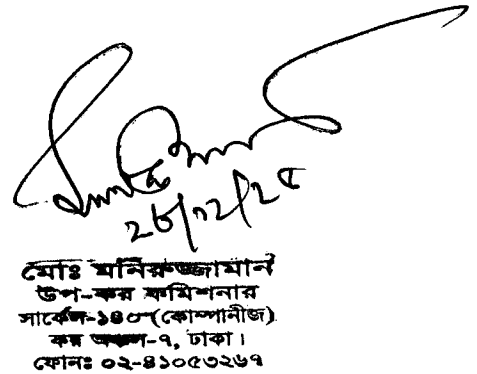 ২৮/১২/২৫
মোঃ মনিরুজ্জামান
উপ-কর কমিশনার
সার্কেল-১৪০ (কোম্পানীজ)
কর অঞ্চল-৭, ঢাকা।
ফোনঃ ০২-৪১০৫৩২৬৭